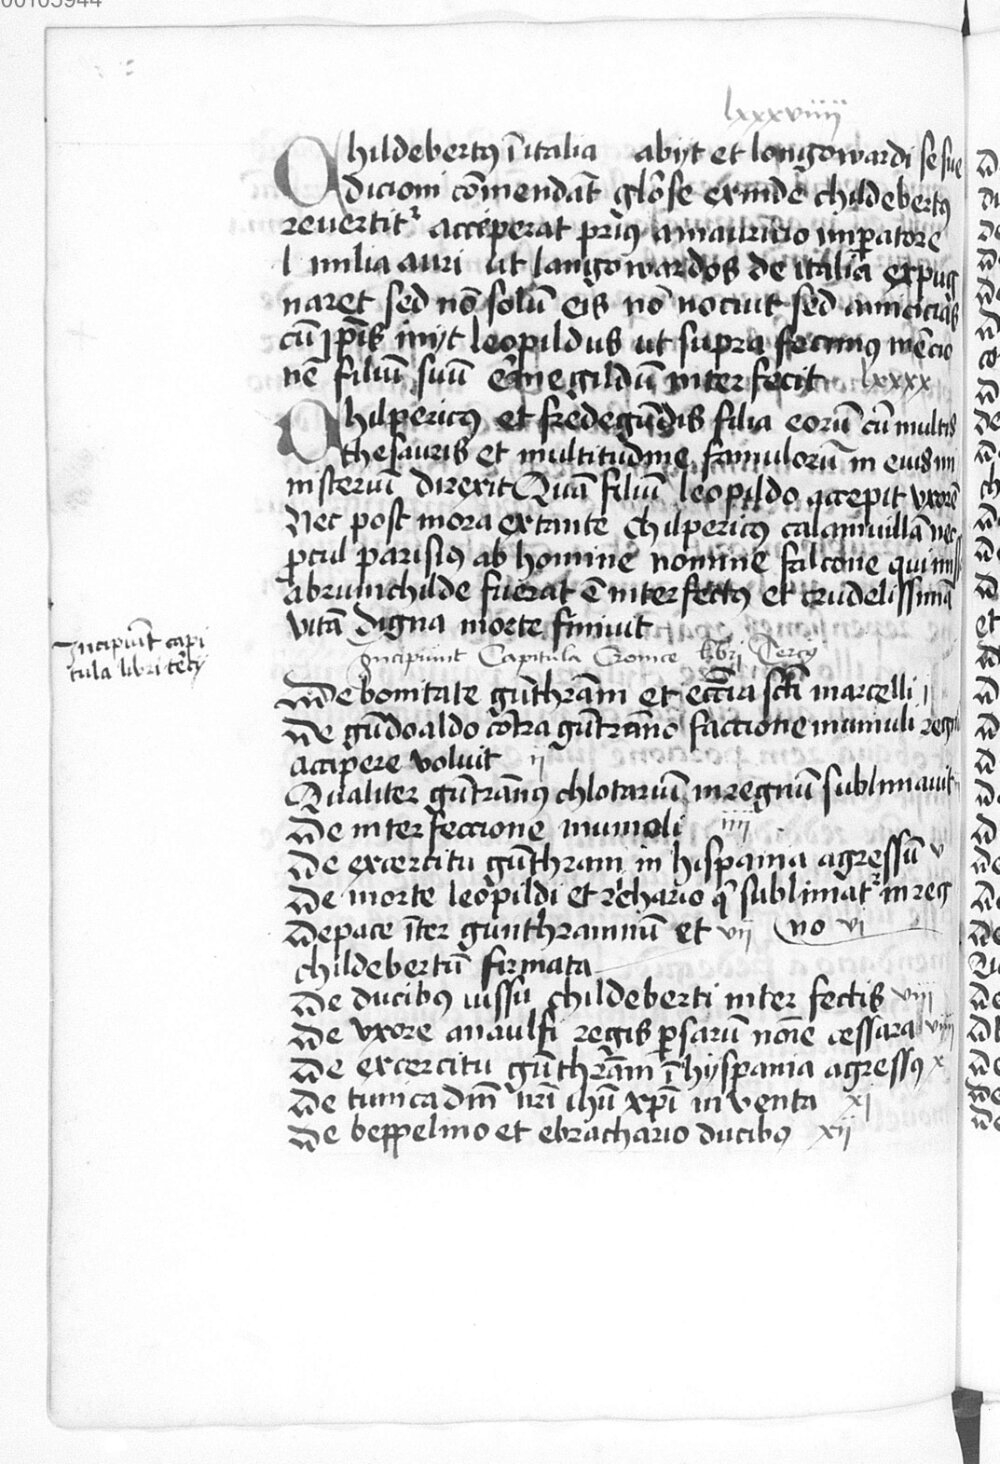 00105944
lxxxviiii
Childebertꝰ ī italia abijt et longowardi se sue
dicioni cōmendāt glōse exinde childebertꝰ
revertitᷣ acciperat priꝰ a mauricio imperatore
l milia auri ut langowardos de italia expug
naret sed nō solū eis nō nocuit sed amicicias
cū ip̄is inijt leopildus ut supra fecimꝰ mēcio
nē filiū suū ermegildū interfecit lxxxx
Chilpericꝰ et fredegūdis filia eorū cū multis
thesauris et multitudine famulorū in eius mi
nisteriū direxit Quā filiū leopildo accepit vxorē
Nec post mora extante chilpericꝰ calamuillā nec
procul parisiꝰ ab homine nomine falcone qui miss
a brunichilde fuerat ē interfectꝰ et crudelissimā
vitā digna morte finiuit
Incipiūt capi
tula libri tercij
Incipiunt Capitula Cronice libri Tercij
De bonitate gūthrām et eccīa scti marcelli i
De gūdoaldo cōtra gūtrānō faccione mumuli regn
accipere voluit ij
Qualiter gūtrānꝰ chlotariū in regnū sublimauit
De interfeccione mumoli iiii
De excercitu gūthram in hispania agressū v
De morte leopildi et richario qͥ sublimatᷣ in reg
De pace īter gunthramnū et vij no vi
childebertū firmata
De ducibꝰ iussu childeberti interfectis viii
De vxore anaulfi regis persarū nōie cessara viiii
De excercitu gūthrām ī hyspania agressꝰ x
De tunica dnī nrī ihū xpī inventa xj
De beppelino et ebrachario ducibꝰ xij